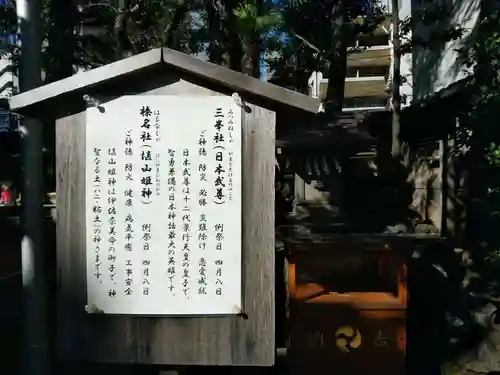 みつみねしゃ　やまとたけるのみこと
三峯社（日本武尊）
例祭日　四月八日
ご神徳　防災　必勝　災難除け　恋愛成就
日本武尊は十二代景行天皇の皇子で、
智勇兼備の日本神話最大の英雄です。
はるなしゃ　はにやまひめのかみ
榛名社（埴山姫神）
例祭日　四月八日
ご神徳　防火　健康　病気平癒　工事安全
埴山姫神は伊佐奈美命の御子で、神
聖なる土（ハニ・粘土）の神さまです。